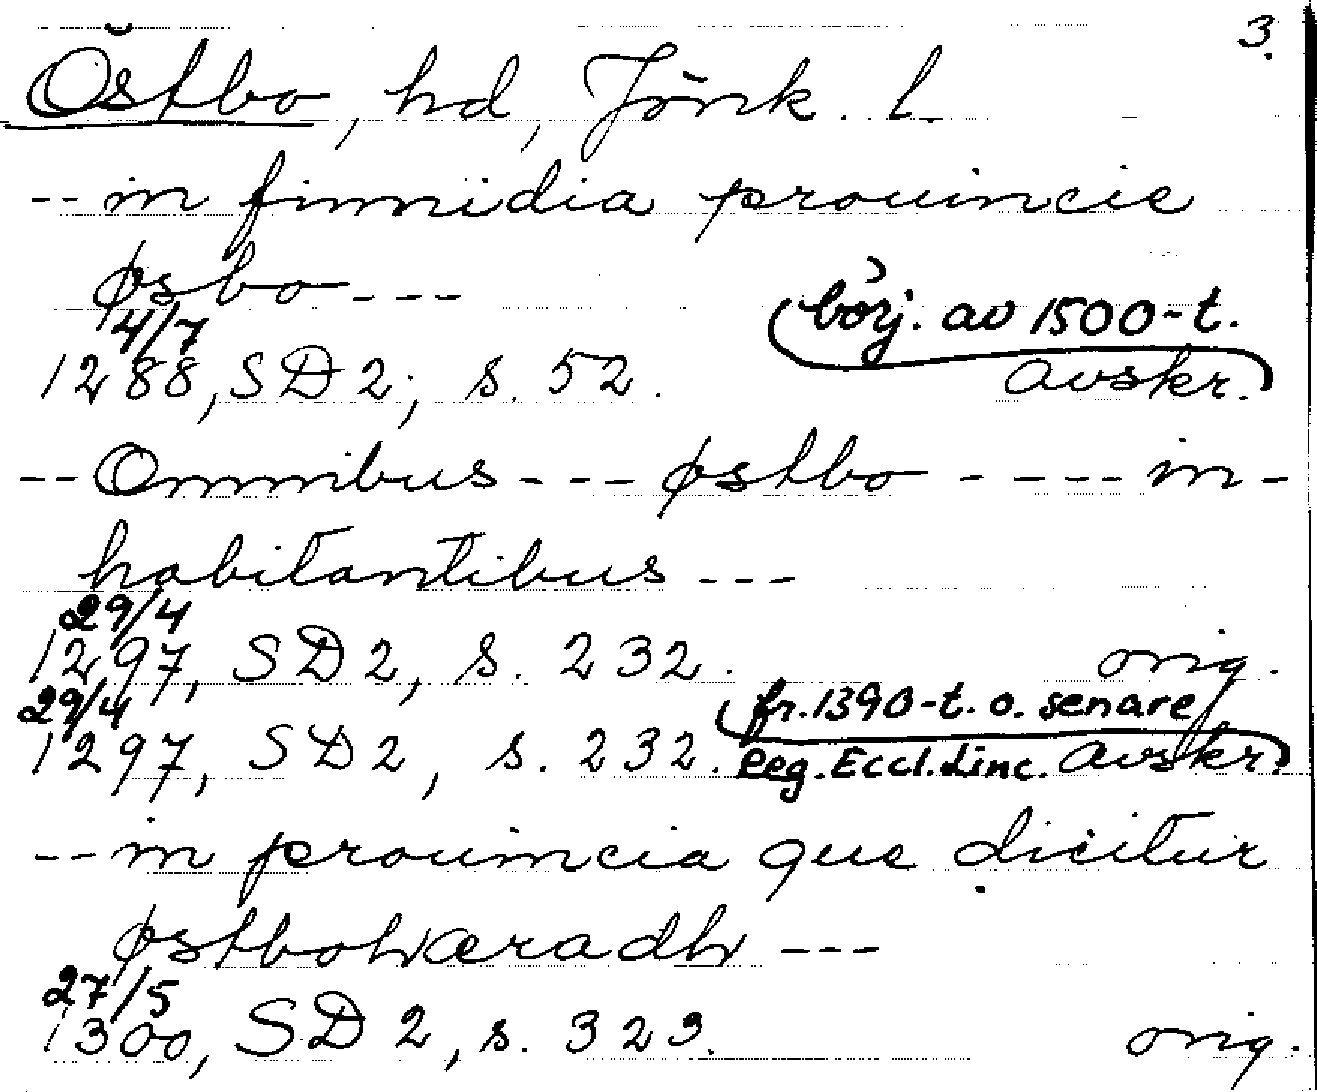 3.
Östbo, hd, Jönk. l.
-- in finnidia prouincie
øsbo ---
4/7 (börj. av 1500-t.
1288, SD 2, s. 52. avskr.)
-- Omnibus --- østbo ---- in-
habitantibus ---
29/4
1297, SD 2, s. 232. orig.
29/4 (fr. 1390-t. o. senare
1297, SD 2, s. 232. Reg. Eccl. Linc. avskr.)
-- in prouincia que dicitur
østbohæradh ---
27/5
1300, SD 2, s. 323. orig.